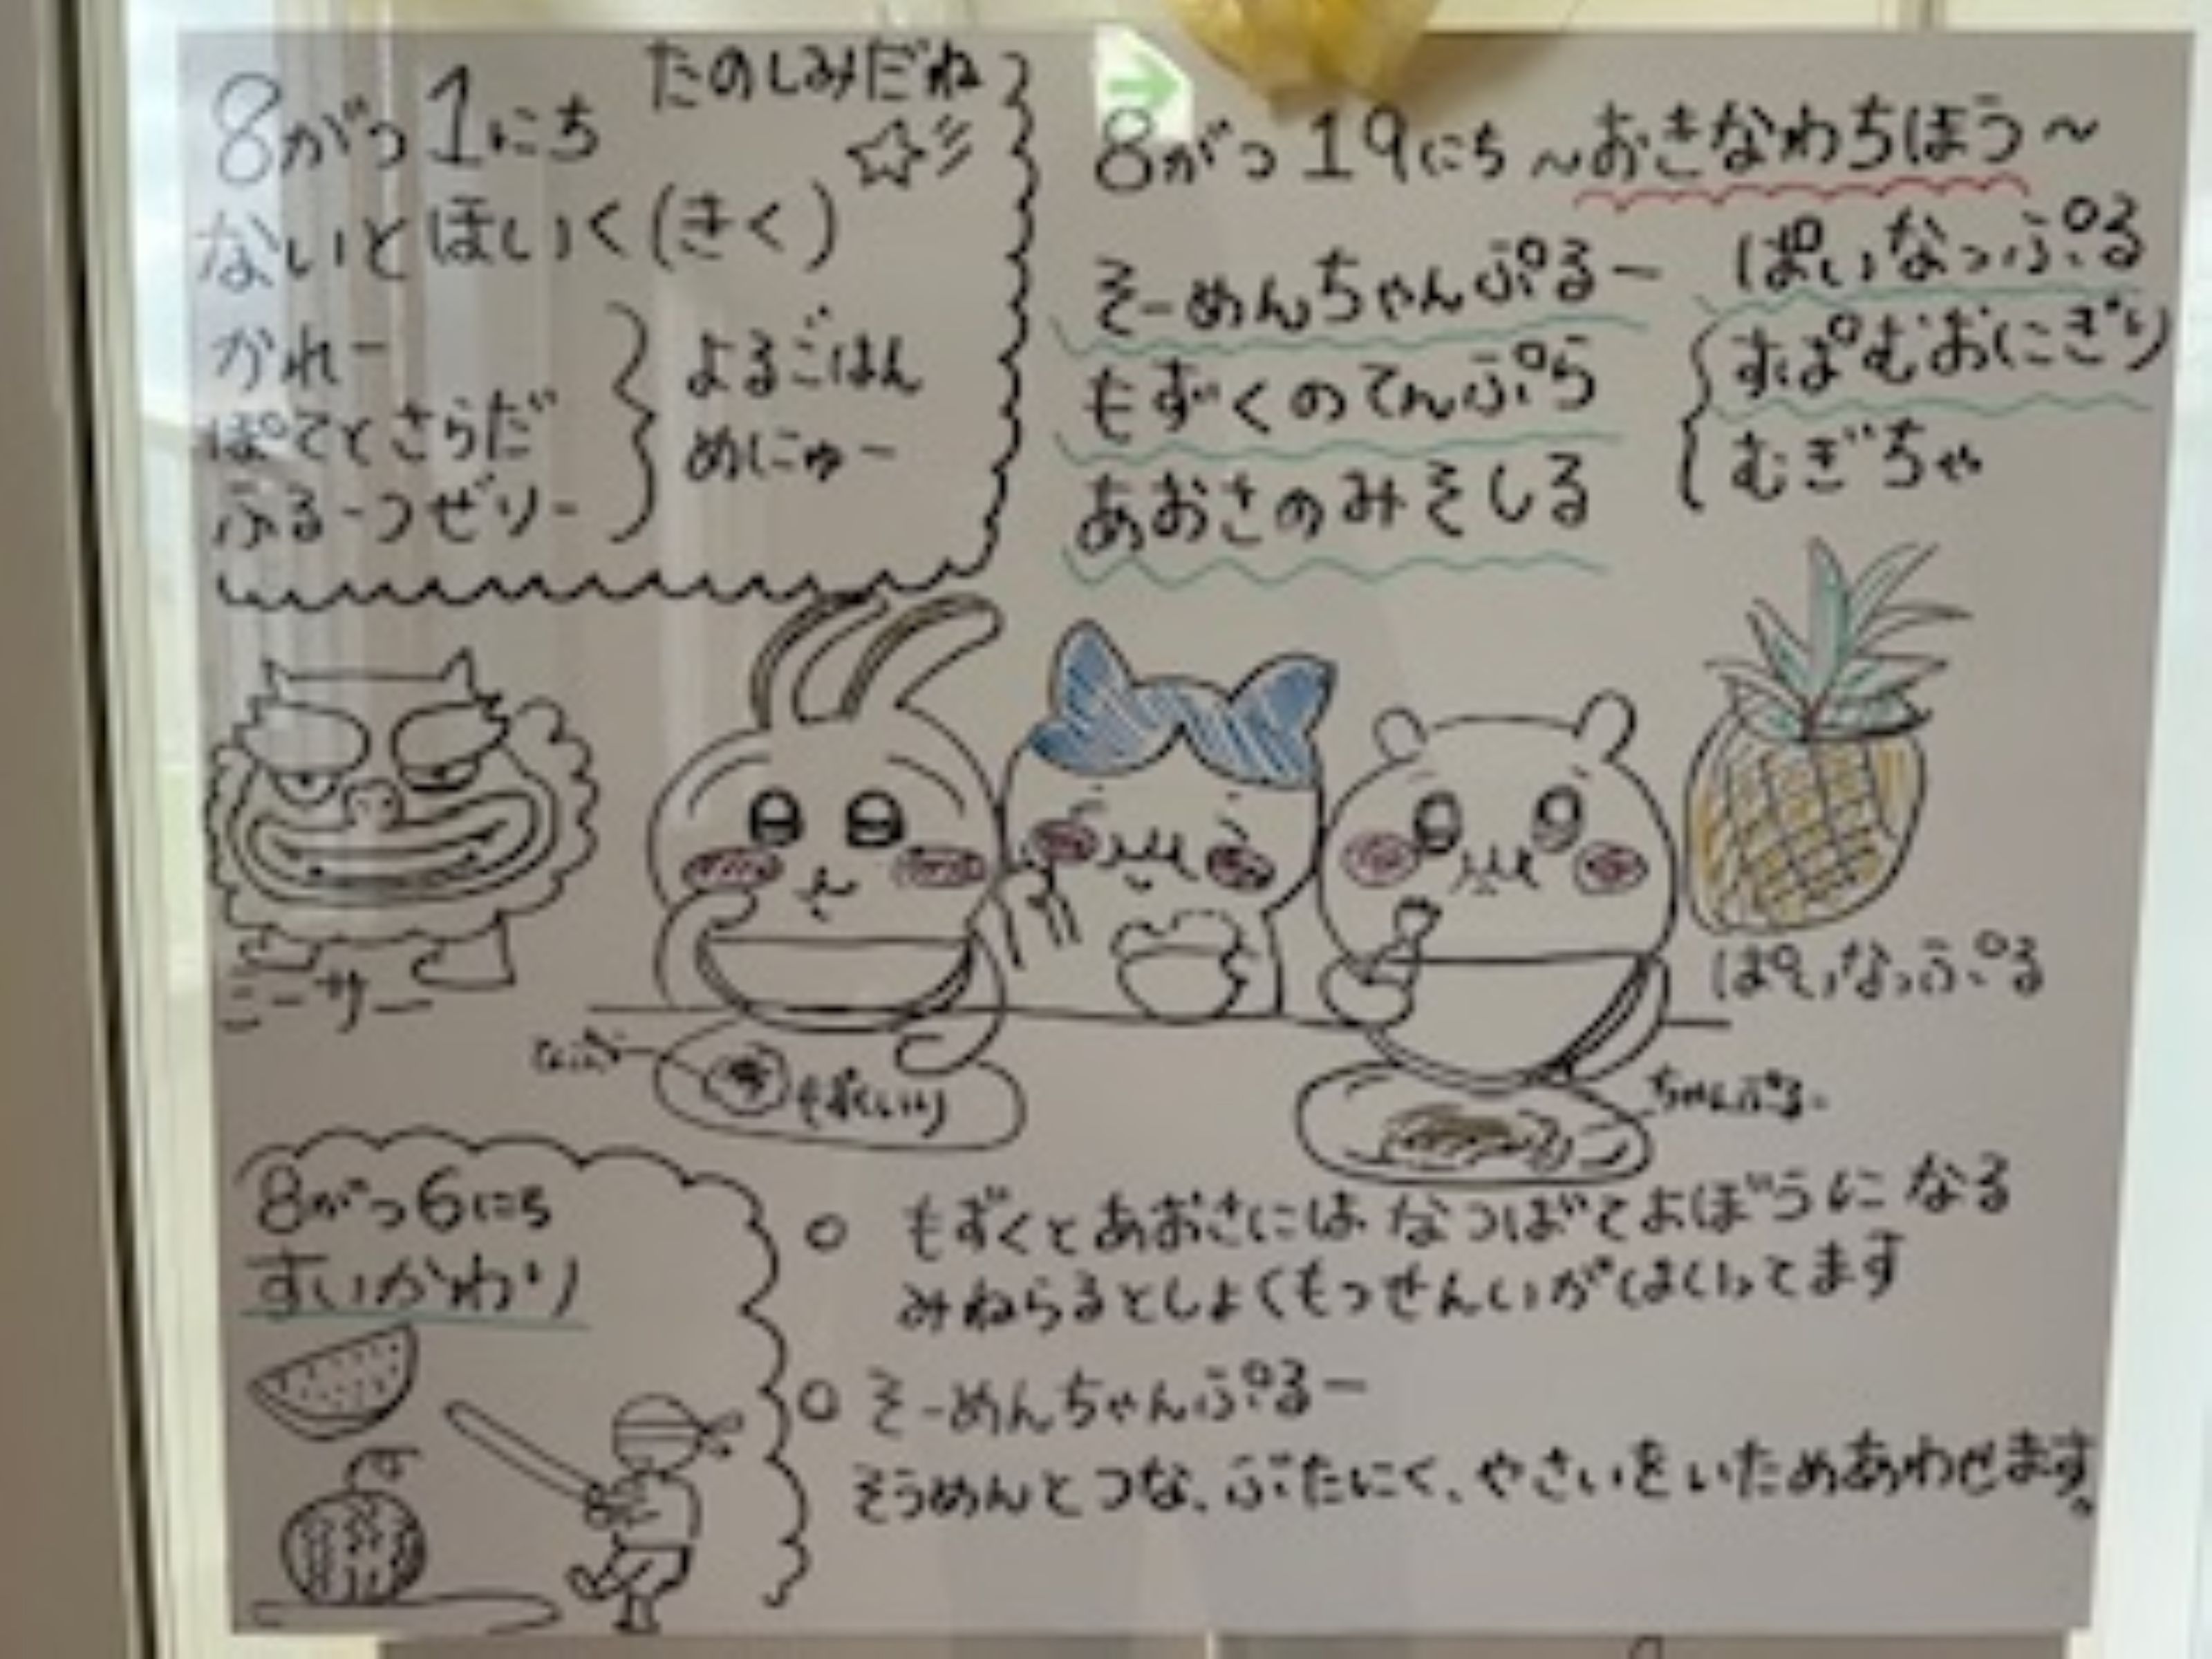 8がつ1にち
たのしみだね
ないとほいく(きく)
かれー
ぽてとさらだ
ふるーつぜりー
よるごはん
めにゅー
8がつ19にち ~おきなわちほう~
そーめんちゃんぷるー
もずくのてんぷら
あおさのみそしる
ぱいなっぷる
すぱむおにぎり
むぎちゃ
シーサー
ぱいなっぷる
もずくいり
ちゃんぷるー
8がつ6にち
すいかわり
○ もずくとあおさには なつばてよぼうに なる
みねらるとしょくもつせんいがはいってます
○ そーめんちゃんぷるー
そうめんとつな、ぶたにく、やさいをいためあわせます。